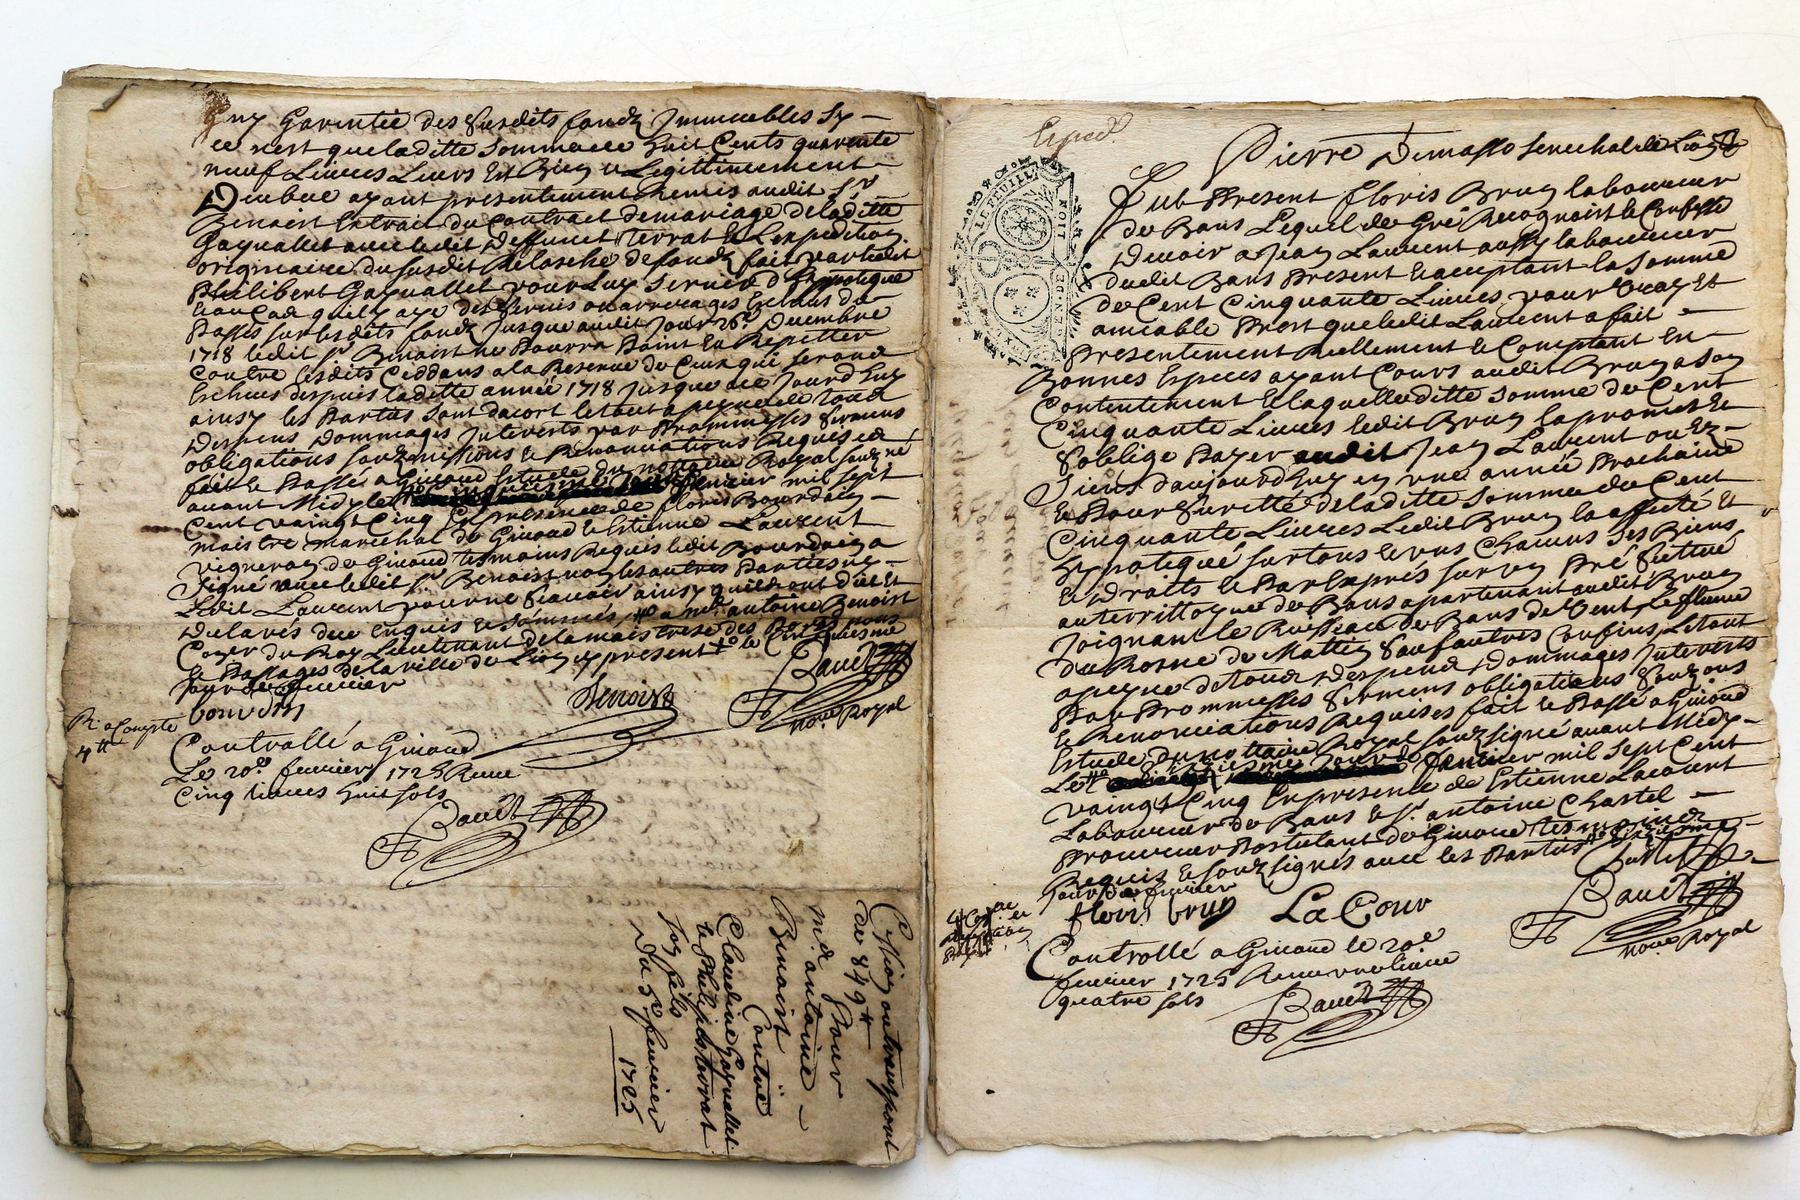 Garentie des susdits fondz Immeubles sy
ce n'est que laditte somme de huit Cents quarente
neuf Livres Leurs Est Bien & Legittimement
Deube ayant presentement Remis audit Sr
Benoist Extrait du Contract de mariage de laditte
Gaynallet avec ledit Deffunct Terrat & L'expedition
originaire du susdit Relasché de fondz fait par ledit
Philibert Gaynallet pour Luy servir d'Hypotique
& au Cas quil y aye des servis ou arrerages Eschus du
Passé sur lesdits fondz Jusque audit Jour 26e Decembre
1718 ledit Sr Benoist ne Pourra Point En Repetter
Contre lesdits Ceddans a la Reserve de Ceux qui seront
Eschus despuis laditte année 1718 Jusque a ce Jourd'huy
ainsy les Parties sont d'acort le tout a peyne de tous
Despens Dommages Interests par Prommesses sermens
obligations soubzmissions & Renonciations Requises
fait & Passé a Givord Estude du nottaire Royal soubzné
avant Midy le fevrier mil sept
Cent vaingt Cinq En presence de floris Bourdain
maistre marechal de Givord & Estienne Laurent
vigneron de Givord tesmoins Requis ledit Bourdain a
signé avec ledit Sr Benoist non les autres Parties ny
Ledit Laurent pour ne scavoir ainsy quils ont dit Et
Declarés de ce Enquis & sommés a me antoine Benoist
Coner du Roy Lieutenant de la maistrise des Ports ponts
& Passages de la ville de Lion y present le Cinquiesme
Jour de fevrier
bourdin
Benoist
Baudt
nore Royal
R. a Compte
4tt
Controllé a Givord
Le 20e fevrier 1725 Receu
Cinq livres huit sols
Baudt
Cession
de 849tt
Pour
me antoine
Benoist
Contre
Claudine Gaynallet
& Philiplo terrat
son fils
Du 5e fevrier
1725
Exped.
LE FEUILLE
GEN. DE LION
Pierre Dumas so senechal de Lion
Fut Present Floris Brun laboureur
de Bans Lequel de Gré Recognoist & Confesse
Devoir a Jean Laurent aussy laboureur
dudit Bans Present & acceptant la somme
de Cent Cinquante Livres pour vray Et
amiable Prest que ledit Laurent a fait
Presentement Reellement & Comptant En
Bonnes Especes ayant Cours audit Brun a son
Contentement & laquelle ditte somme de Cent
Cinquante Livres ledit Brun la promis &
s'oblige Payer audit Jean Laurent ou Ez
siens d'aujourd'huy en une année Prochaine
& Pour surretté de laditte somme de Cent
Cinquante Livres Ledit Brun la affecté &
Hypotiqué sur tous & uns Chacuns ses Biens
& Droitts & Par Exprés sur un Pré scitué
au territtoyre de Bans apartenant audit Brun
Joignant le Ruisseau de Bans de vent
du Rosne de Mattin sauf autres Confins Le tout
a peyne de tous Despens Dommages Interests
Par Prommesses sermens obligations soubzons
& Renonciations Requises fait & Passé a Givord
Estude du nottaire Royal soubzsigné avant Midy
Le fevrier mil sept Cent
vaingt Cinq En presence de Estienne Lacourt
Laboureur de Bans & Sr antoine Chastel
Procureur Postulant de Givord tesmoins
Requis & soubzsignés avec les Parties
Jour de fevrier
floris brun
La Cour
Chastel
Baudt
nore Royal
Controllé a Givord le 20e
fevrier 1725 Receu une livre
quatre sols
Baudt